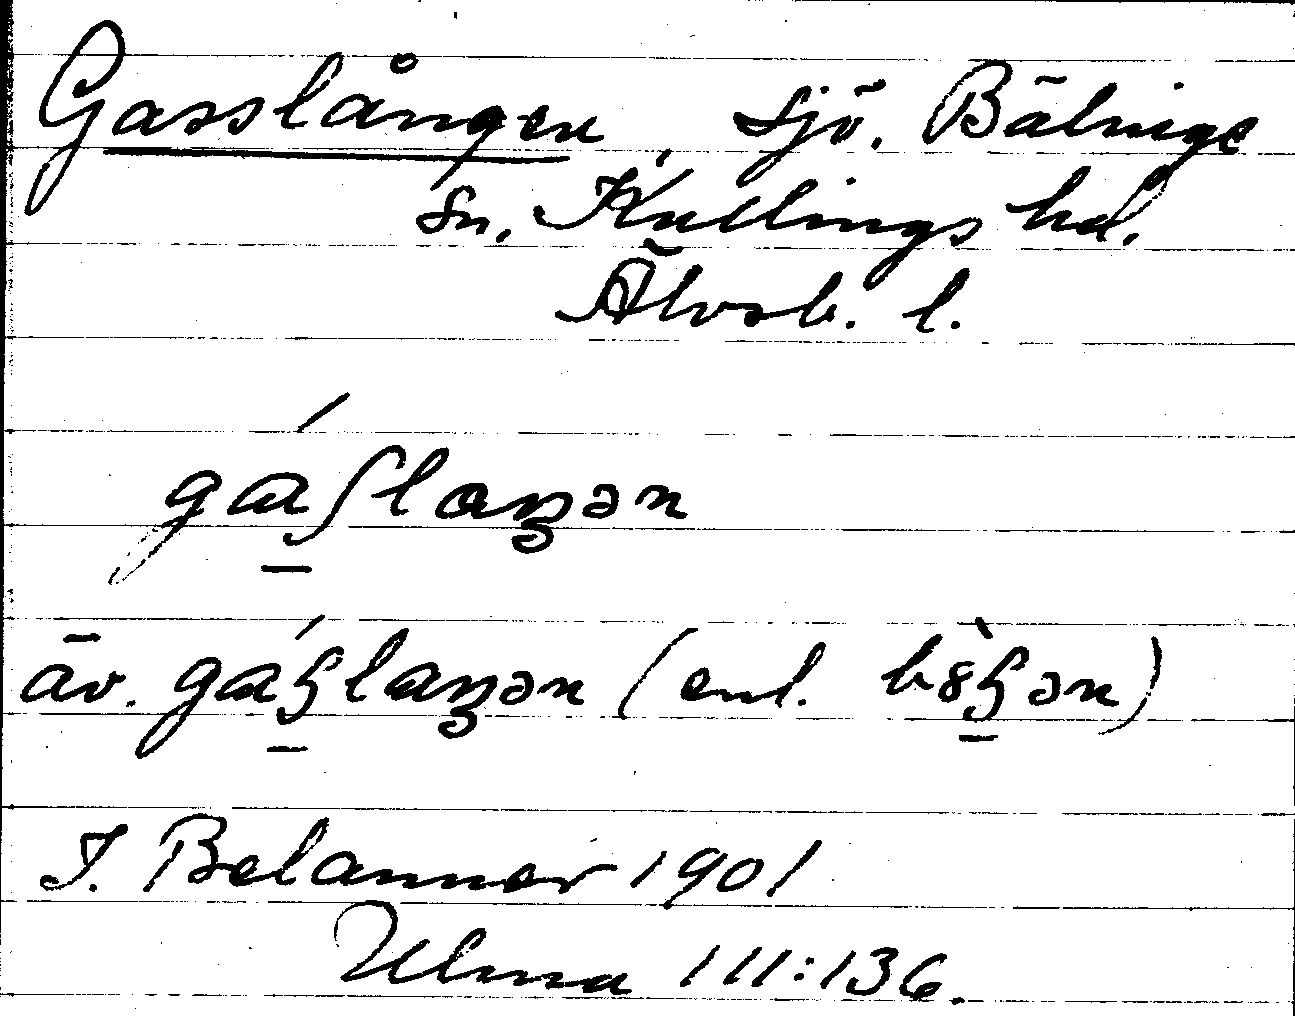 Gasslången, sjö. Bälings
sn. Kullings hd.
Älvsb. l.
gáʃlaŋən
äv. gáꜧlaŋən (enl. bȣ̀ꜧən)
I. Belanner 1901
Ulma 111:136.